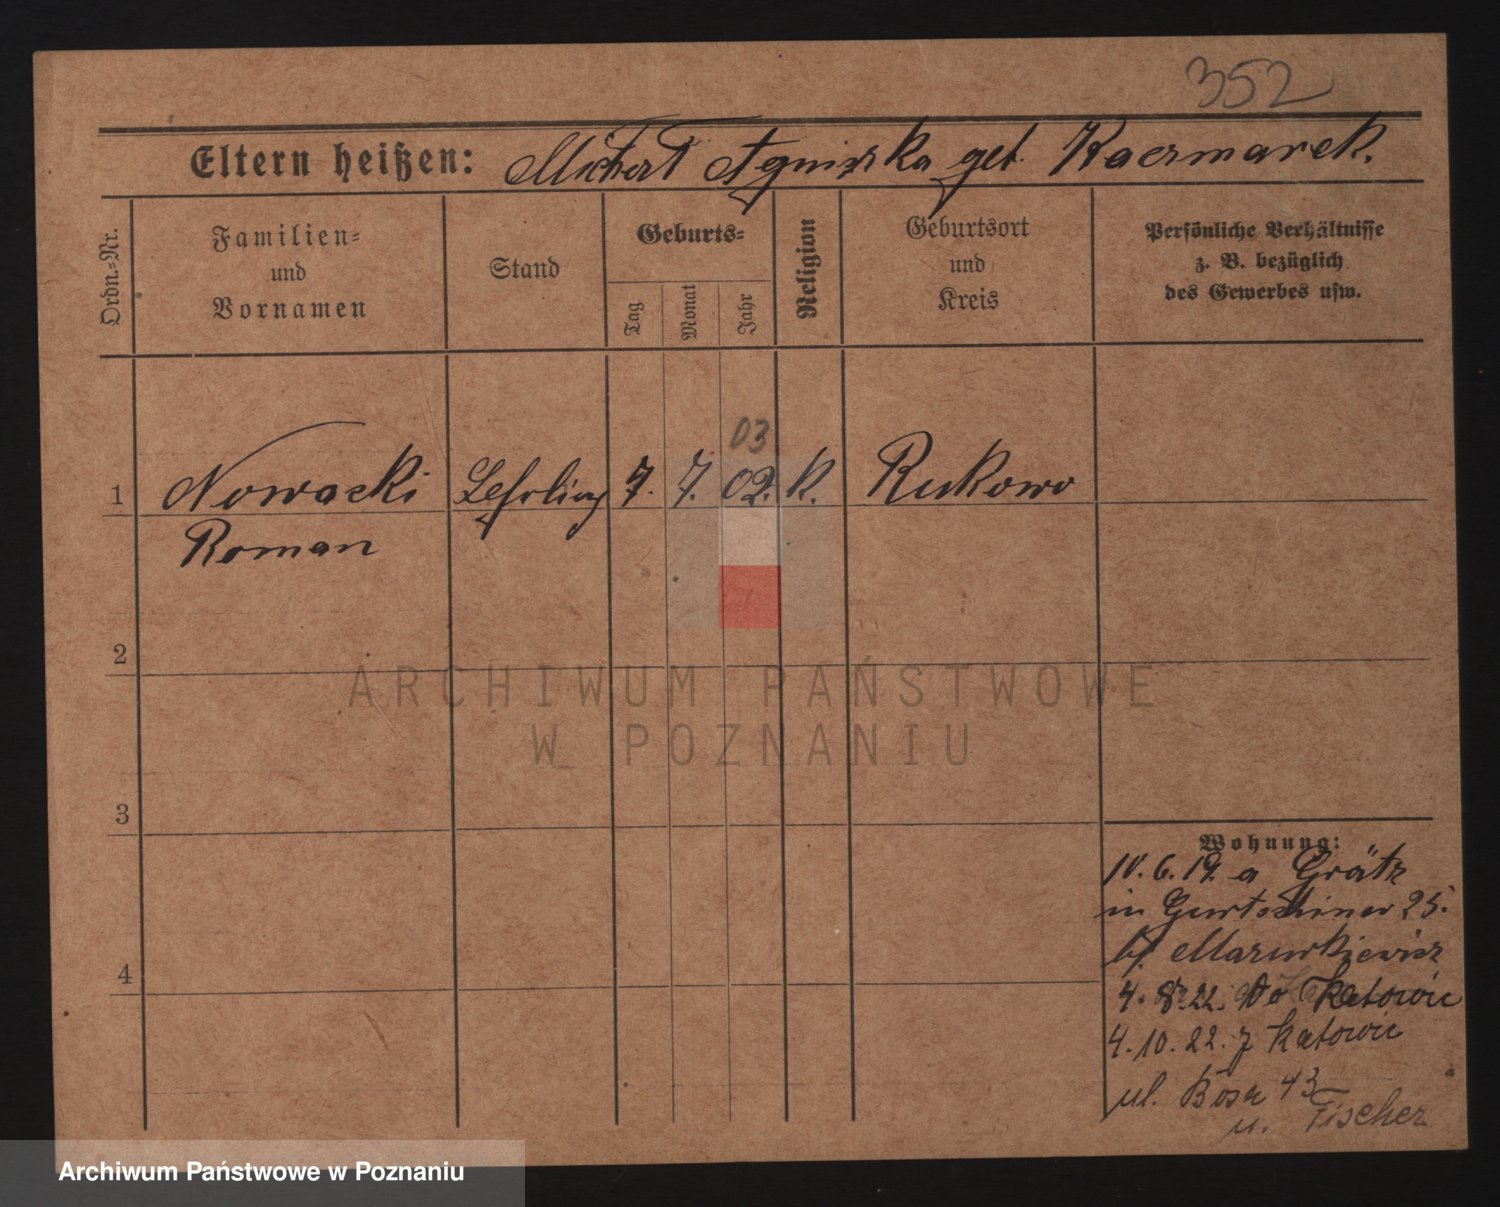 352
Eltern heißen: Michał Agniszka geb. Kaczmarek.
Ordn-Nr.
Familien-
und
Vornamen
Stand
Geburts-
Tag
Monat
Jahr
Religion
Geburtsort
und
Kreis
Persönliche Verhältnisse
z. B. bezüglich
des Gewerbes usw.
03
1 Nowacki Lehrling 7. 7. 02. k. Rukowo
Roman
2
ARCHIWUM PAŃSTWOWE
W POZNANIU
3
Wohnung:
10. 6. 19. a Grätz
in Gurtschiner 25.
b/ Mazurkiewicz
4. 8. 22. do Katowic
4. 10. 22. z Katowic
ul. Bosa 43
u. Fischer
4
Archiwum Państwowe w Poznaniu